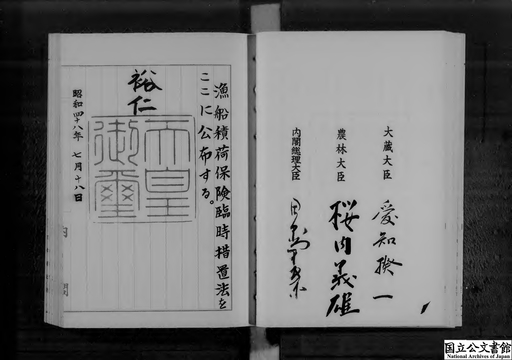 漁船積荷保険臨時措置法を
ここに公布する。
裕仁
天皇
御璽
昭和四十八年七月十八日
大蔵大臣 愛知揆一
農林大臣 桜内義雄
内閣総理大臣 田中角榮
国立公文書館
National Archives of Japan